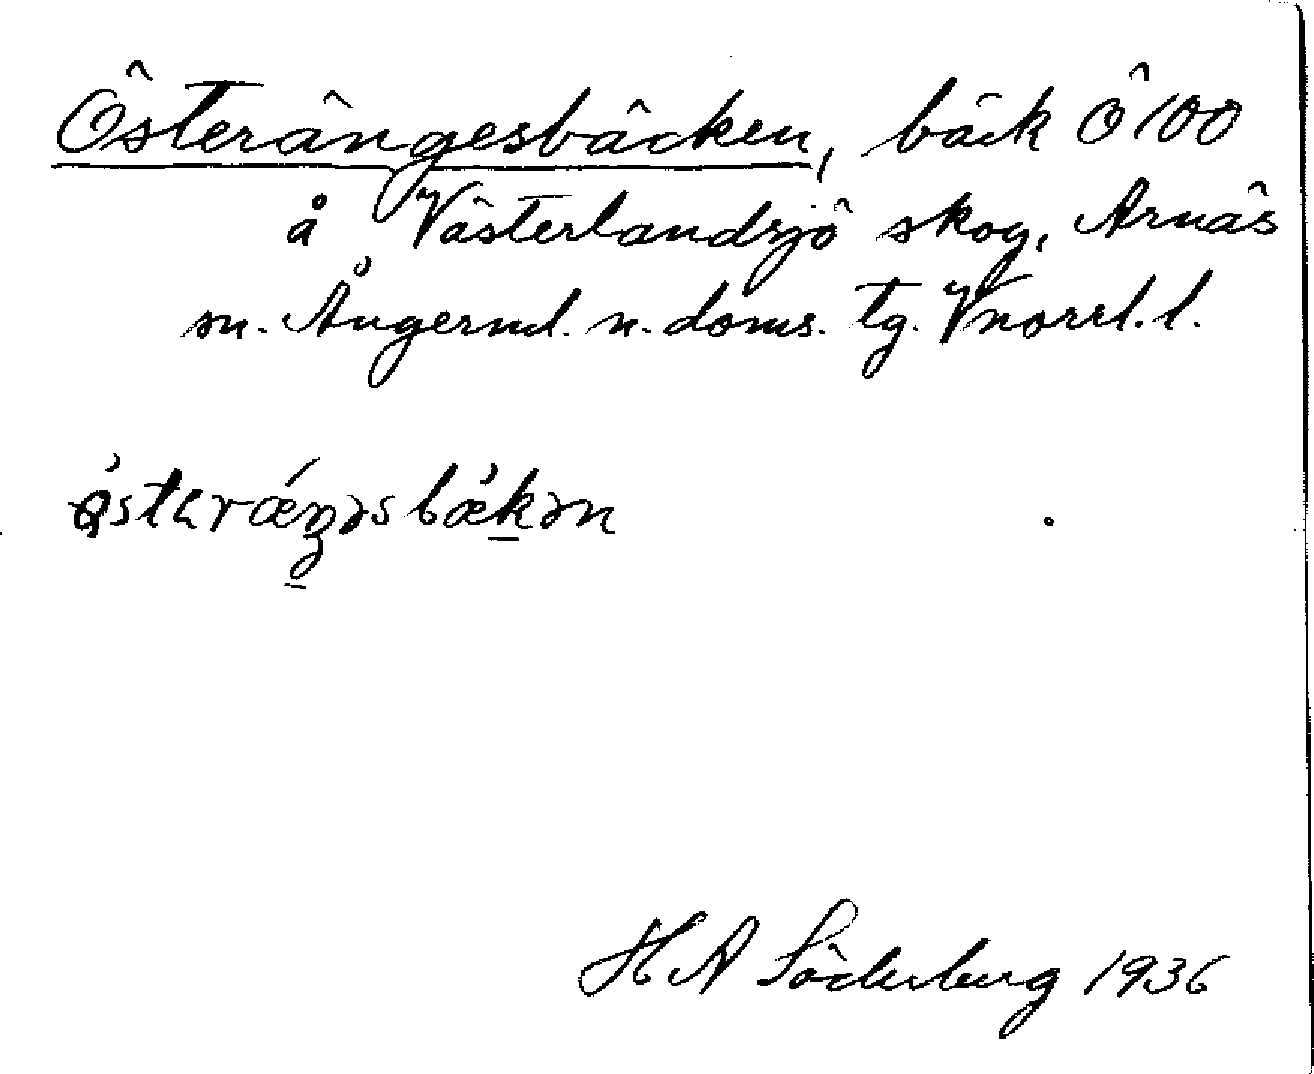 Österängesbäcken, bäck Ö 100
å Västerlandsjö skog, Arnäs
sn. Ångerml. n. doms. tg. Vnorrl. l.
östɩræŋəsbækən
H A Söderberg 1936